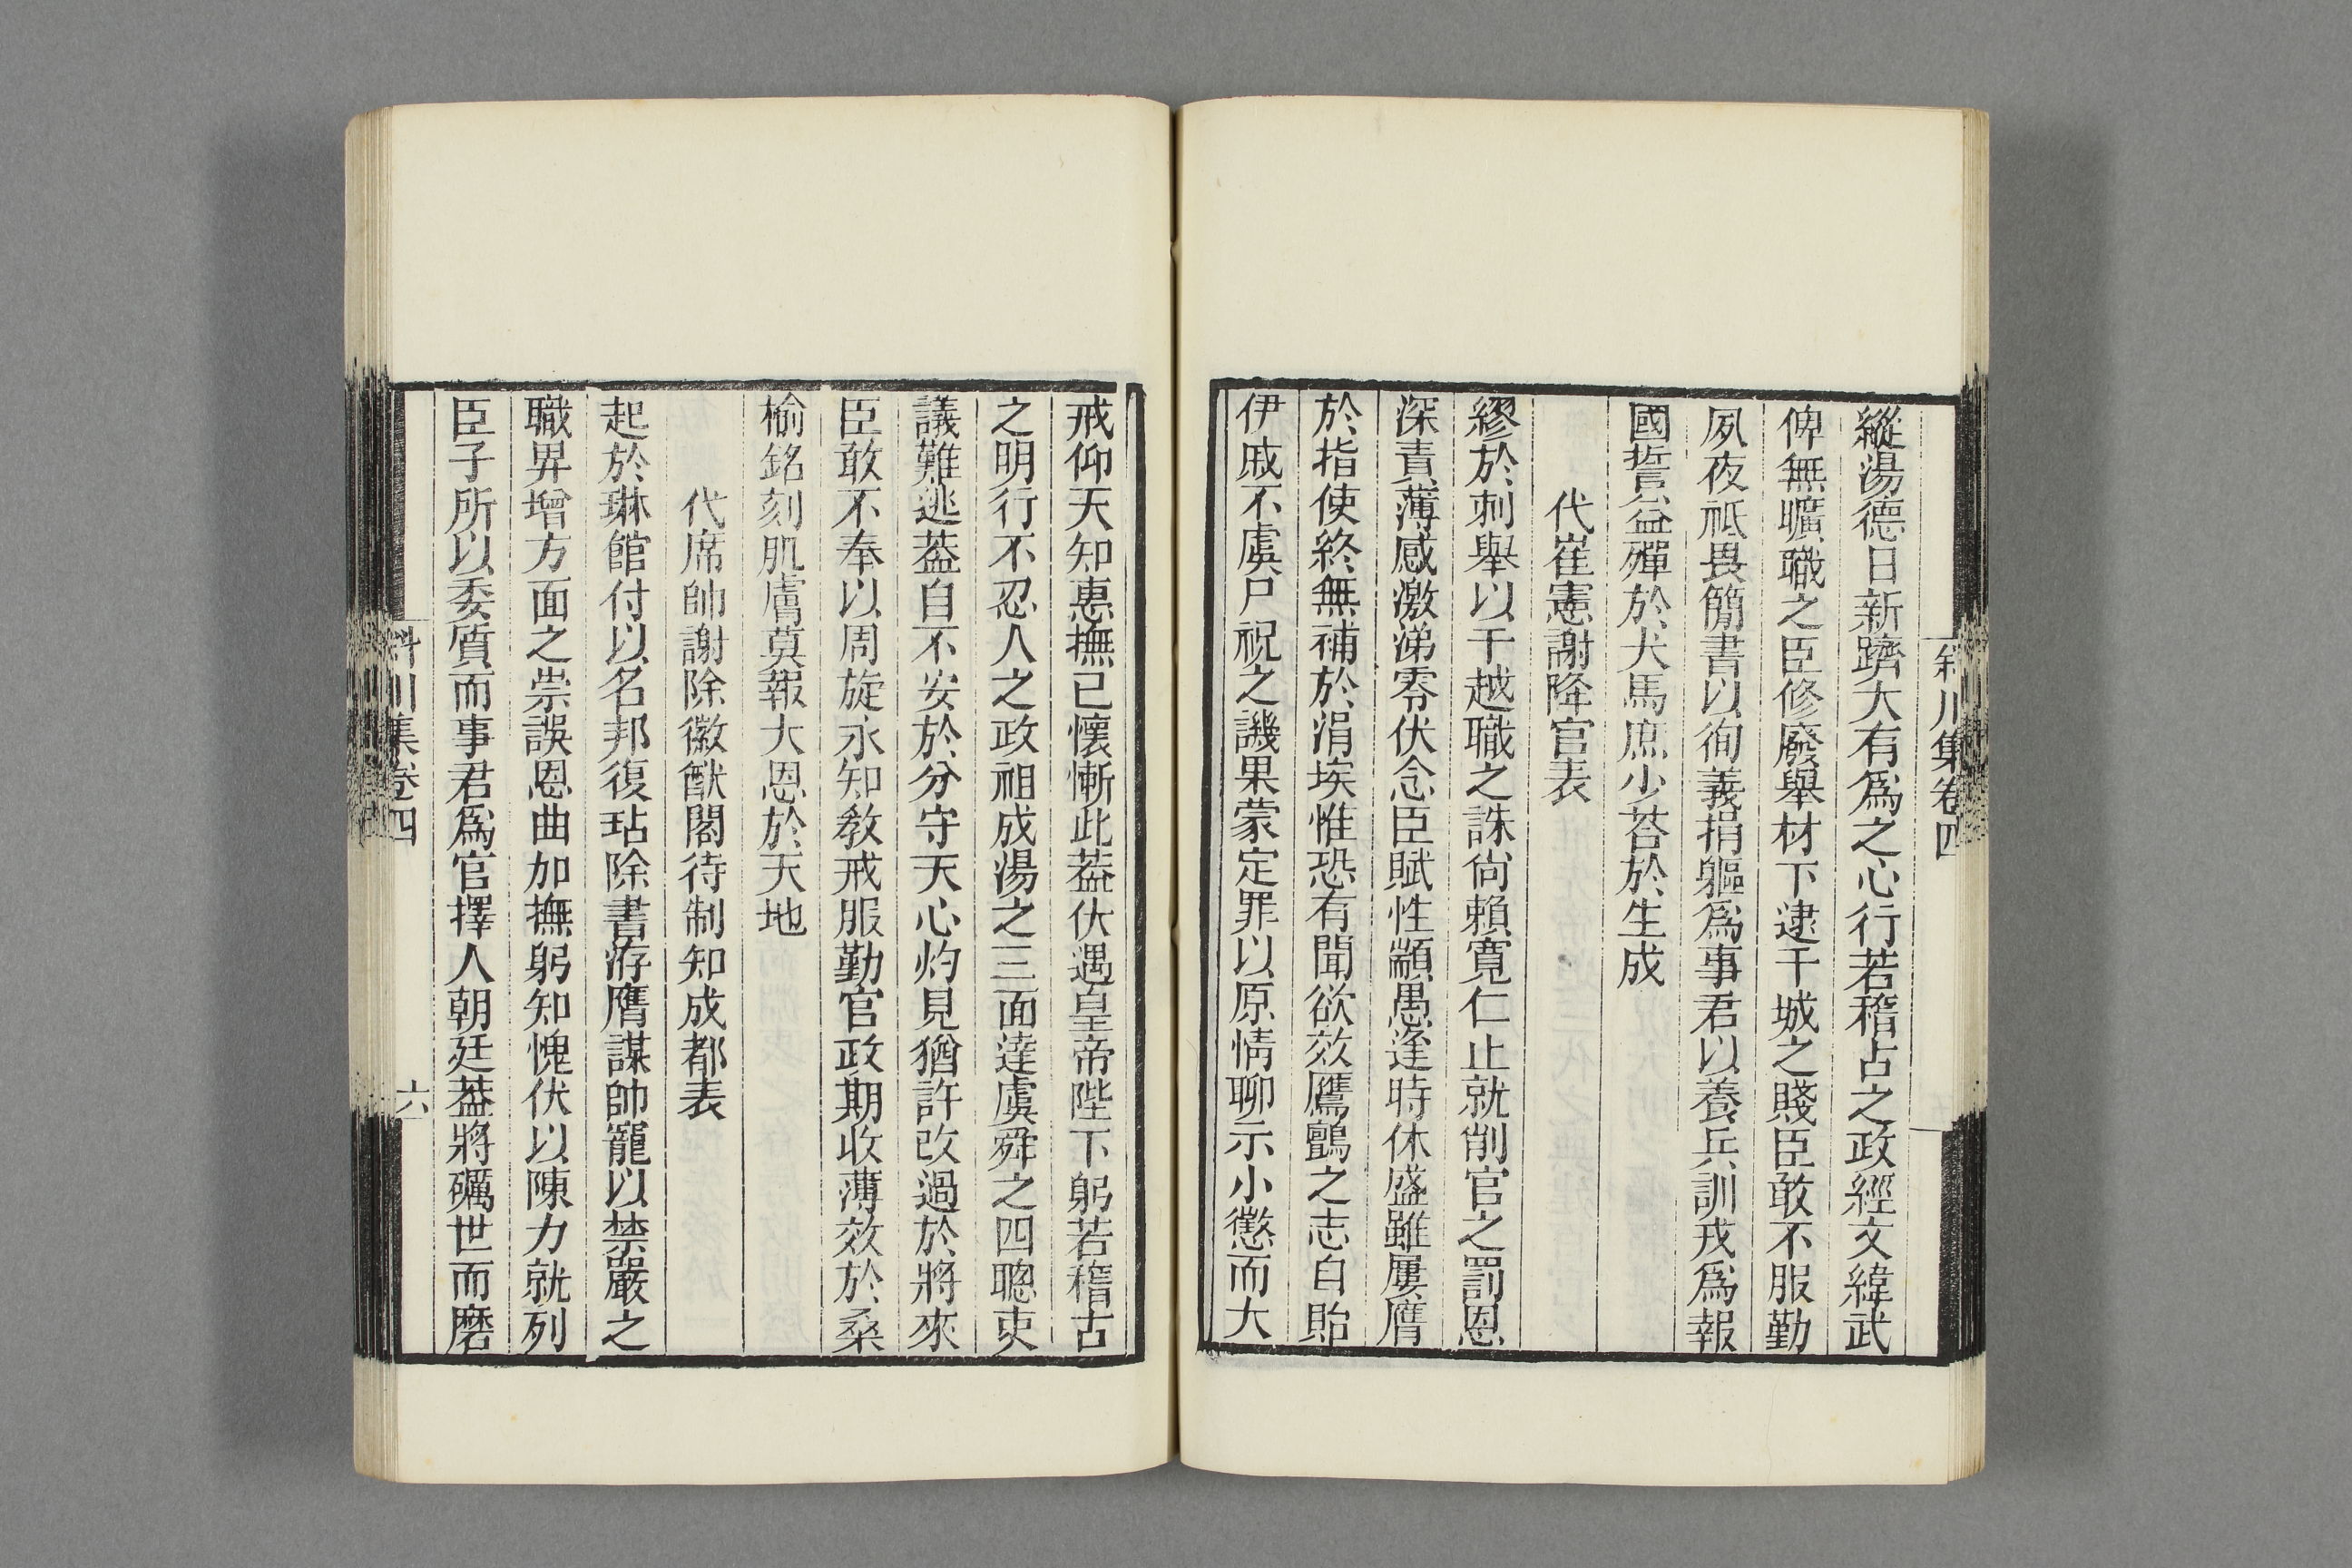 縱湯德日新躋大有爲之心行若稽占之政經文緯武
俾無曠職之臣修廢舉材下逮干城之賤臣敢不服勤
夙夜祗畏簡書以徇義捐軀爲事君以養兵訓戎爲報
國誓益殫於犬馬庶少荅於生成
代崔憲謝降官表
繆於刺舉以干越職之誅尙賴寬仁止就削官之罰恩
深責薄感激涕零伏念臣賦性顓愚逢時休盛雖屢膺
於指使終無補於涓埃惟恐有聞欲效鷹鸇之志自貽
伊戚不虞尸祝之譏果蒙定罪以原情聊示小懲而大
戒仰天知惠撫已懷慚此葢伏遇皇帝陛下躬若稽古
之明行不忍人之政祖成湯之三面達虞舜之四聰吏
議難逃葢自不安於分守天心灼見猶許改過於將來
臣敢不奉以周旋永知敎戒服勤官政期收薄效於桑
榆銘刻肌膚莫報大恩於天地
代席帥謝除徽猷閣待制知成都表
起於琳館付以名邦復玷除書洊膺謀帥寵以禁嚴之
職畀增方面之崇誤恩曲加撫躬知愧伏以陳力就列
臣子所以委質而事君爲官擇人朝廷葢將礪世而磨
斜川集卷四
六